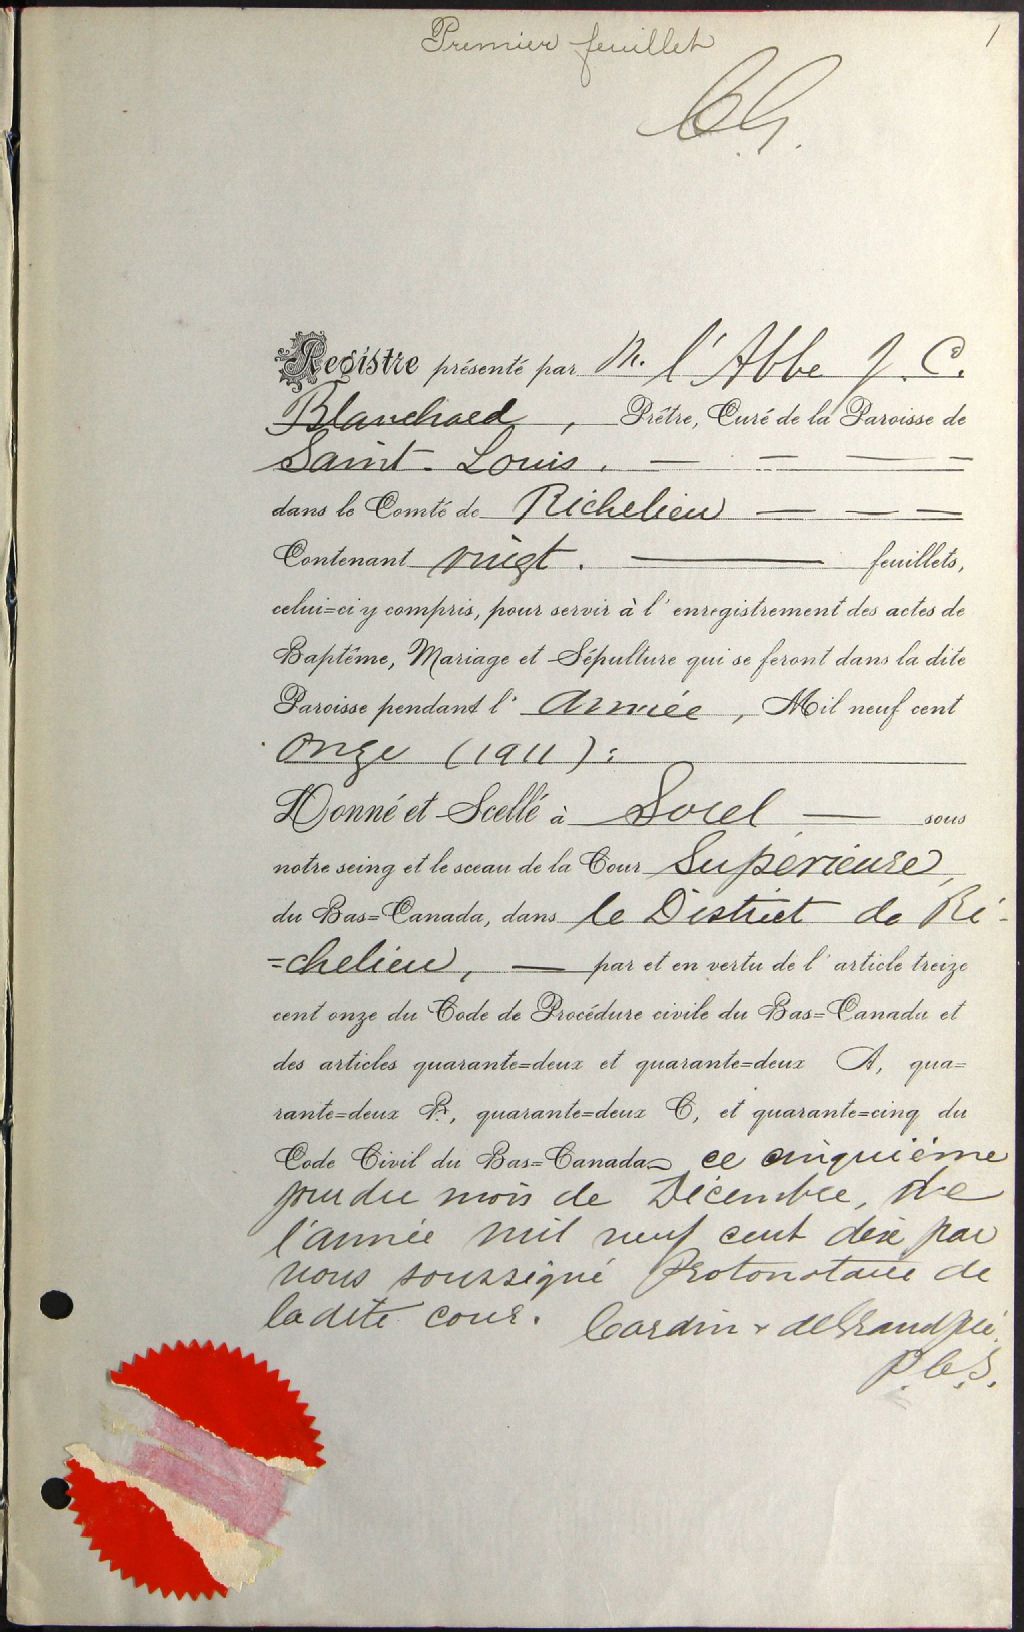 Premier feuillet
1
C. G.
Registre présenté par M. l'Abbe J. C.
Blanchard, Prêtre, Curé de la Paroisse de
Saint-Louis. — — — —
dans le Comté de Richelieu — — —
Contenant vingt. — feuillets,
celui=ci y compris, pour servir à l'enregistrement des actes de
Baptême, Mariage et Sépulture qui se feront dans la dite
Paroisse pendant l'année, Mil neuf cent
onze (1911):
Donné et Scellé à Sorel — sous
notre seing et le sceau de la Cour Supérieure,
du Bas=Canada, dans le District de Ri-
=chelieu, — par et en vertu de l'article treize
cent onze du Code de Procédure civile du Bas=Canada et
des articles quarante=deux et quarante=deux A, qua=
rante=deux B, quarante=deux C, et quarante=cinq du
Code Civil du Bas=Canada — ce cinquième
jour du mois de Décembre, de
l'année mil neuf cent dix par
nous soussigné Protonotaire de
la dite cour. Cardin & deGrandpré
P.C.S.